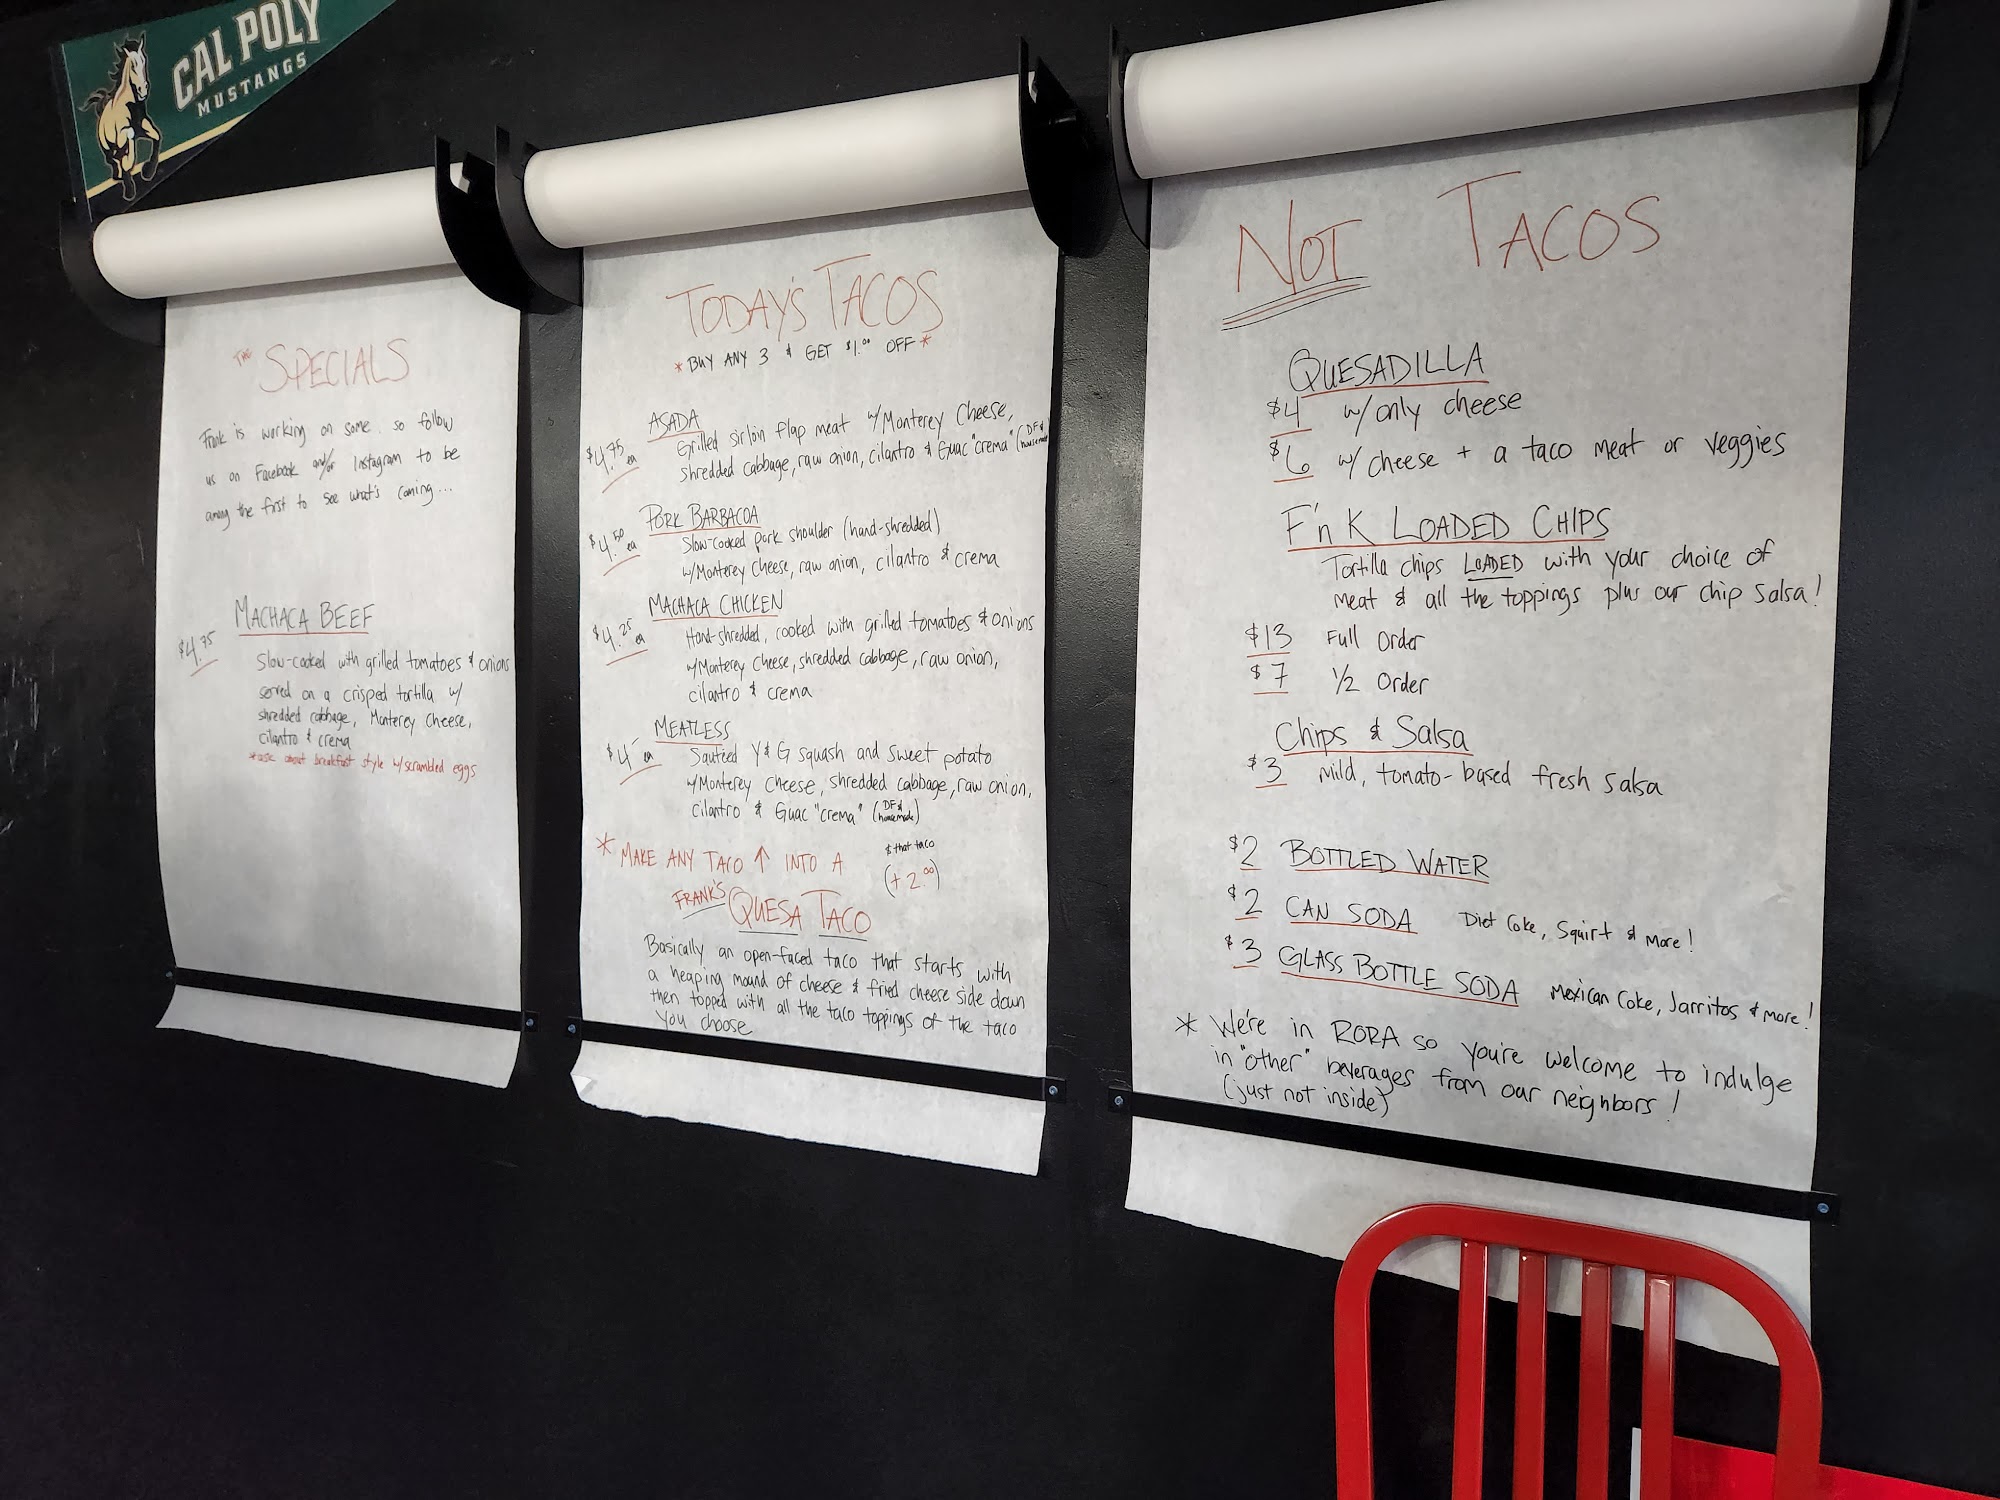 CAL POLY
MUSTANGS
THE SPECIALS
Frank is working on some so follow
us on Facebook and/or Instagram to be
among the first to see what's coming...
MACHACA BEEF
$4.75
Slow-cooked with grilled tomatoes & onions
served on a crisped tortilla w/
shredded cabbage, Monterey Cheese,
cilantro & crema
*ask about breakfast style w/scrambled eggs
TODAY'S TACOS
*BUY ANY 3 & GET $1.00 OFF*
ASADA
$4.75 ea
Grilled sirloin flap meat w/Monterey Cheese,
shredded cabbage, raw onion, cilantro & Guac "crema" (DF & housemade)
PORK BARBACOA
$4.50 ea
Slow-cooked pork shoulder (hand-shredded)
w/Monterey Cheese, raw onion, cilantro & crema
MACHACA CHICKEN
$4.25 ea
Hand-shredded, cooked with grilled tomatoes & onions
w/Monterey Cheese, shredded cabbage, raw onion,
cilantro & crema
MEATLESS
$4- ea
Sautéed Y & G squash and sweet potato
w/Monterey Cheese, shredded cabbage, raw onion,
cilantro & Guac "crema" (DF & housemade)
* MAKE ANY TACO ↑ INTO A
$ that taco
(+2.00)
FRANK'S QUESA TACO
Basically an open-faced taco that starts with
a heaping mound of cheese & fried cheese side down
then topped with all the taco toppings of the taco
you choose
NOT TACOS
QUESADILLA
$4 w/only cheese
$6 w/cheese + a taco meat or veggies
F'n K LOADED CHIPS
Tortilla chips LOADED with your choice of
meat & all the toppings plus our chip salsa!
$13 Full Order
$7 1/2 Order
Chips & Salsa
$3 Mild, tomato-based fresh salsa
$2 BOTTLED WATER
$2 CAN SODA Diet Coke, Squirt & More!
$3 GLASS BOTTLE SODA Mexican Coke, Jarritos & more!
* We're in RORA so you're welcome to indulge
in "other" beverages from our neighbors!
(just not inside)